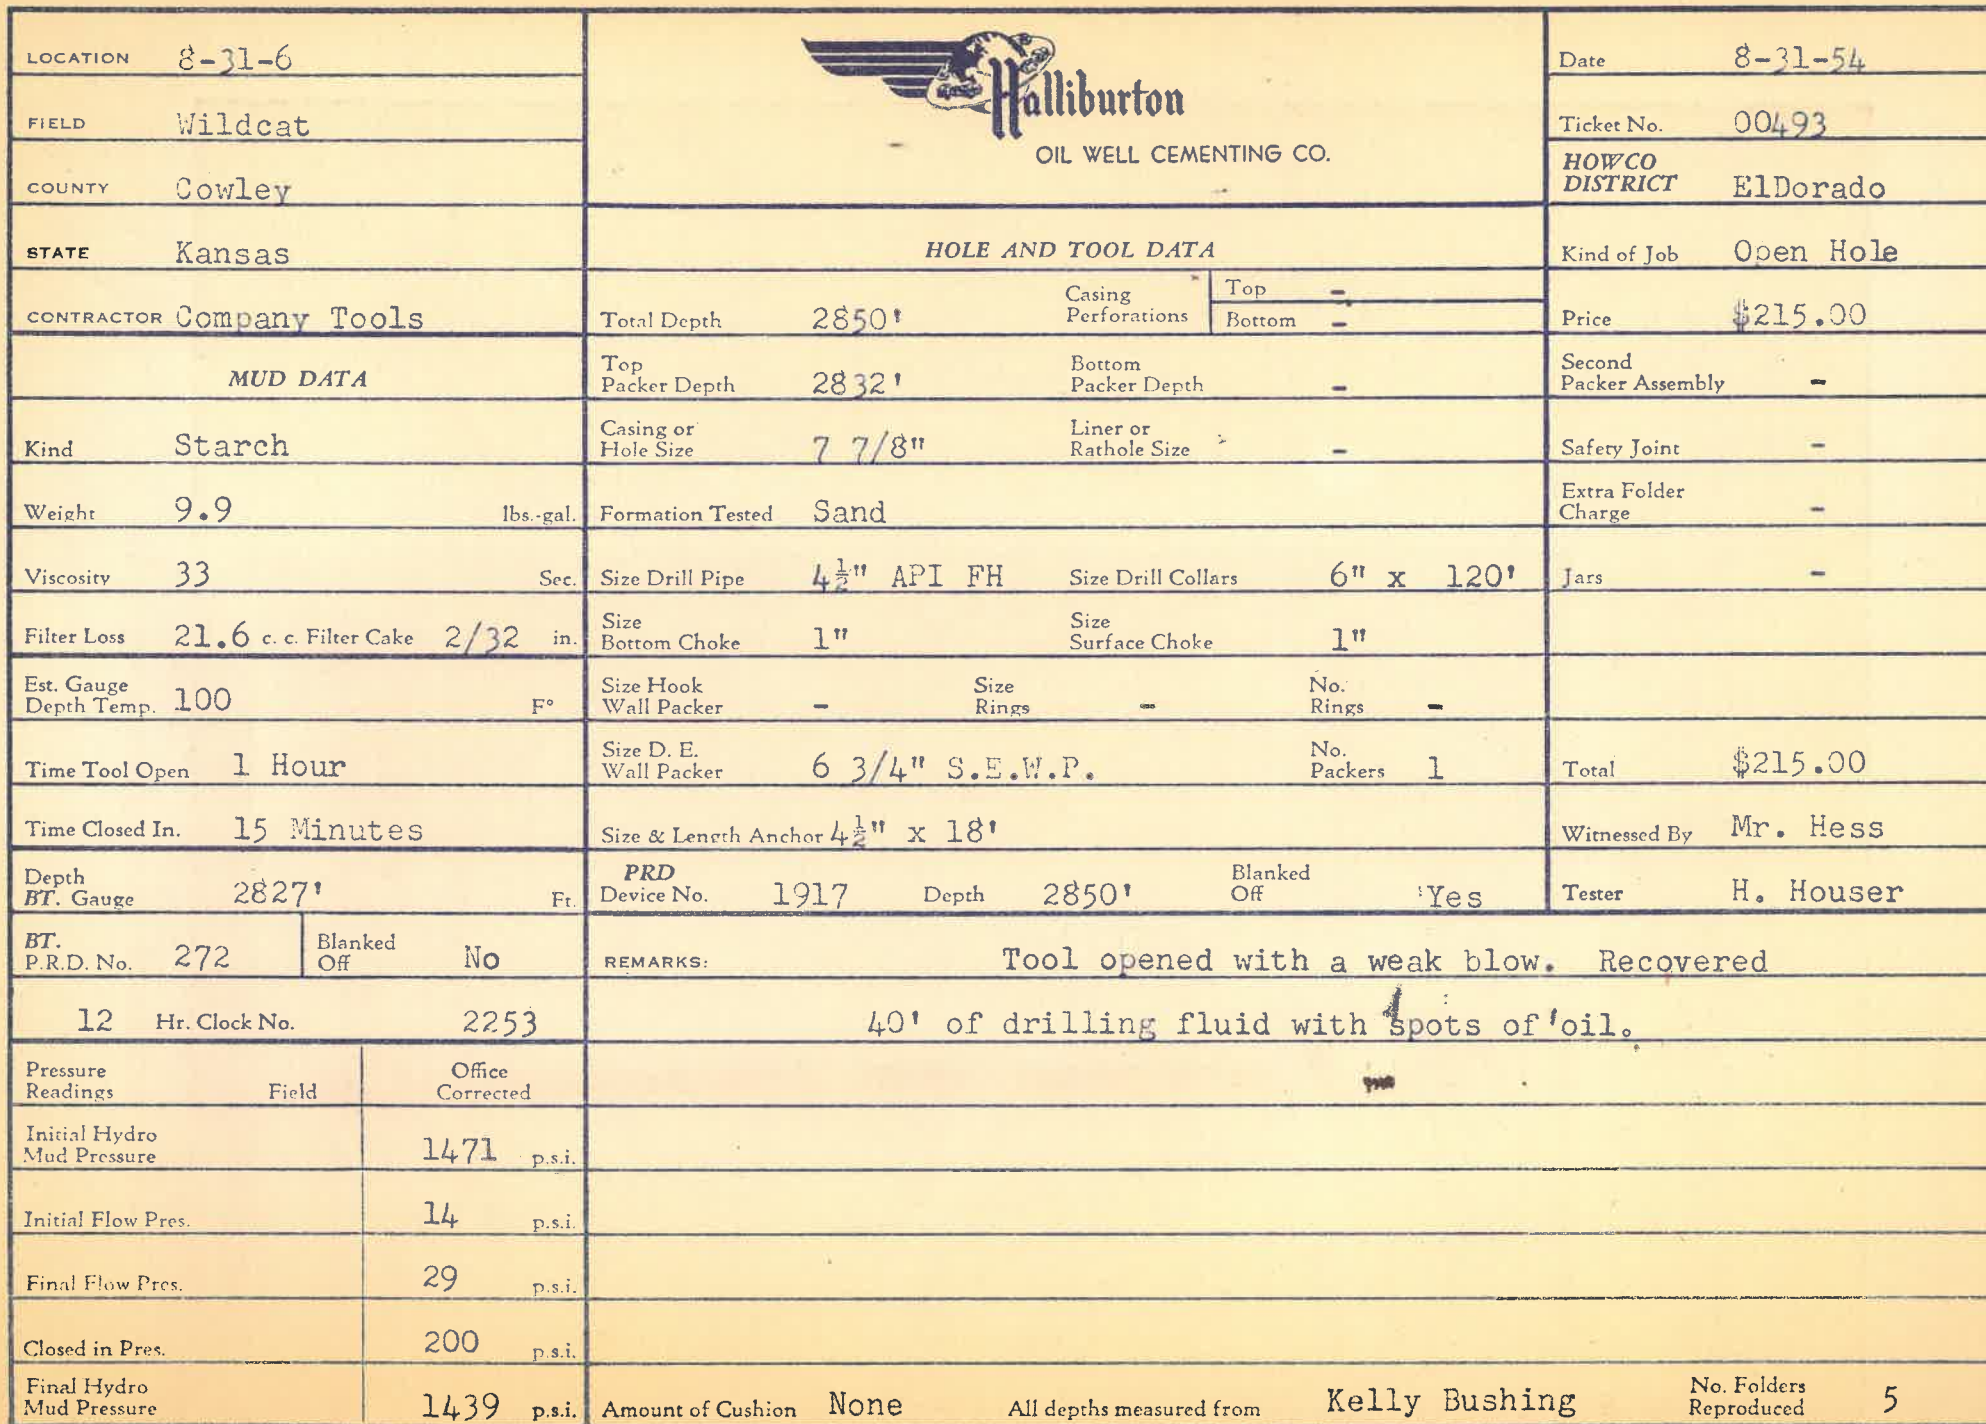 LOCATION 8-31-6
FIELD Wildcat
COUNTY Cowley
STATE Kansas
CONTRACTOR Company Tools
MUD DATA
Kind Starch
Weight 9.9 lbs.-gal.
Viscosity 33 Sec.
Filter Loss 21.6 c. c. Filter Cake 2/32 in.
Est. Gauge
Depth Temp. 100 F°
Time Tool Open 1 Hour
Time Closed In. 15 Minutes
Depth
BT. Gauge 2827' Ft.
BT.
P.R.D. No. 272 Blanked
Off No
12 Hr. Clock No. 2253
Pressure
Readings Field Office
Corrected
Initial Hydro
Mud Pressure 1471 p.s.i.
Initial Flow Pres. 14 p.s.i.
Final Flow Pres. 29 p.s.i.
Closed in Pres. 200 p.s.i.
Final Hydro
Mud Pressure 1439 p.s.i.
Halliburton
OIL WELL CEMENTING CO.
HOLE AND TOOL DATA
Total Depth 2850' Casing
Perforations Top -
Bottom -
Top
Packer Depth 2832' Bottom
Packer Depth -
Casing or
Hole Size 7 7/8" Liner or
Rathole Size -
Formation Tested Sand
Size Drill Pipe 4½" API FH Size Drill Collars 6" x 120'
Size
Bottom Choke 1" Size
Surface Choke 1"
Size Hook
Wall Packer - Size
Rings - No.
Rings -
Size D. E.
Wall Packer 6 3/4" S.E.W.P. No.
Packers 1
Size & Length Anchor 4½" x 18'
PRD
Device No. 1917 Depth 2850' Blanked
Off Yes
REMARKS: Tool opened with a weak blow. Recovered
40' of drilling fluid with spots of oil.
Amount of Cushion None All depths measured from Kelly Bushing No. Folders
Reproduced 5
Date 8-31-54
Ticket No. 00493
HOWCO
DISTRICT ElDorado
Kind of Job Open Hole
Price $215.00
Second
Packer Assembly -
Safety Joint -
Extra Folder
Charge -
Jars -
Total $215.00
Witnessed By Mr. Hess
Tester H. Houser